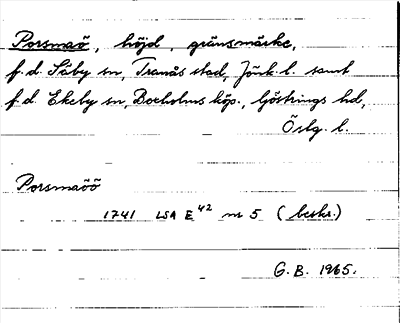 Porsmaö, höjd, gränsmärke,
f.d. Säby sn, Tranås stad, Jönk. l. samt
f.d. Ekeby sn, Boxholms köp., Göstrings hd,
Östg. l.
Porsmaöö
1741 LSA E 42 nr 5 (beskr.)
G. B. 1965.